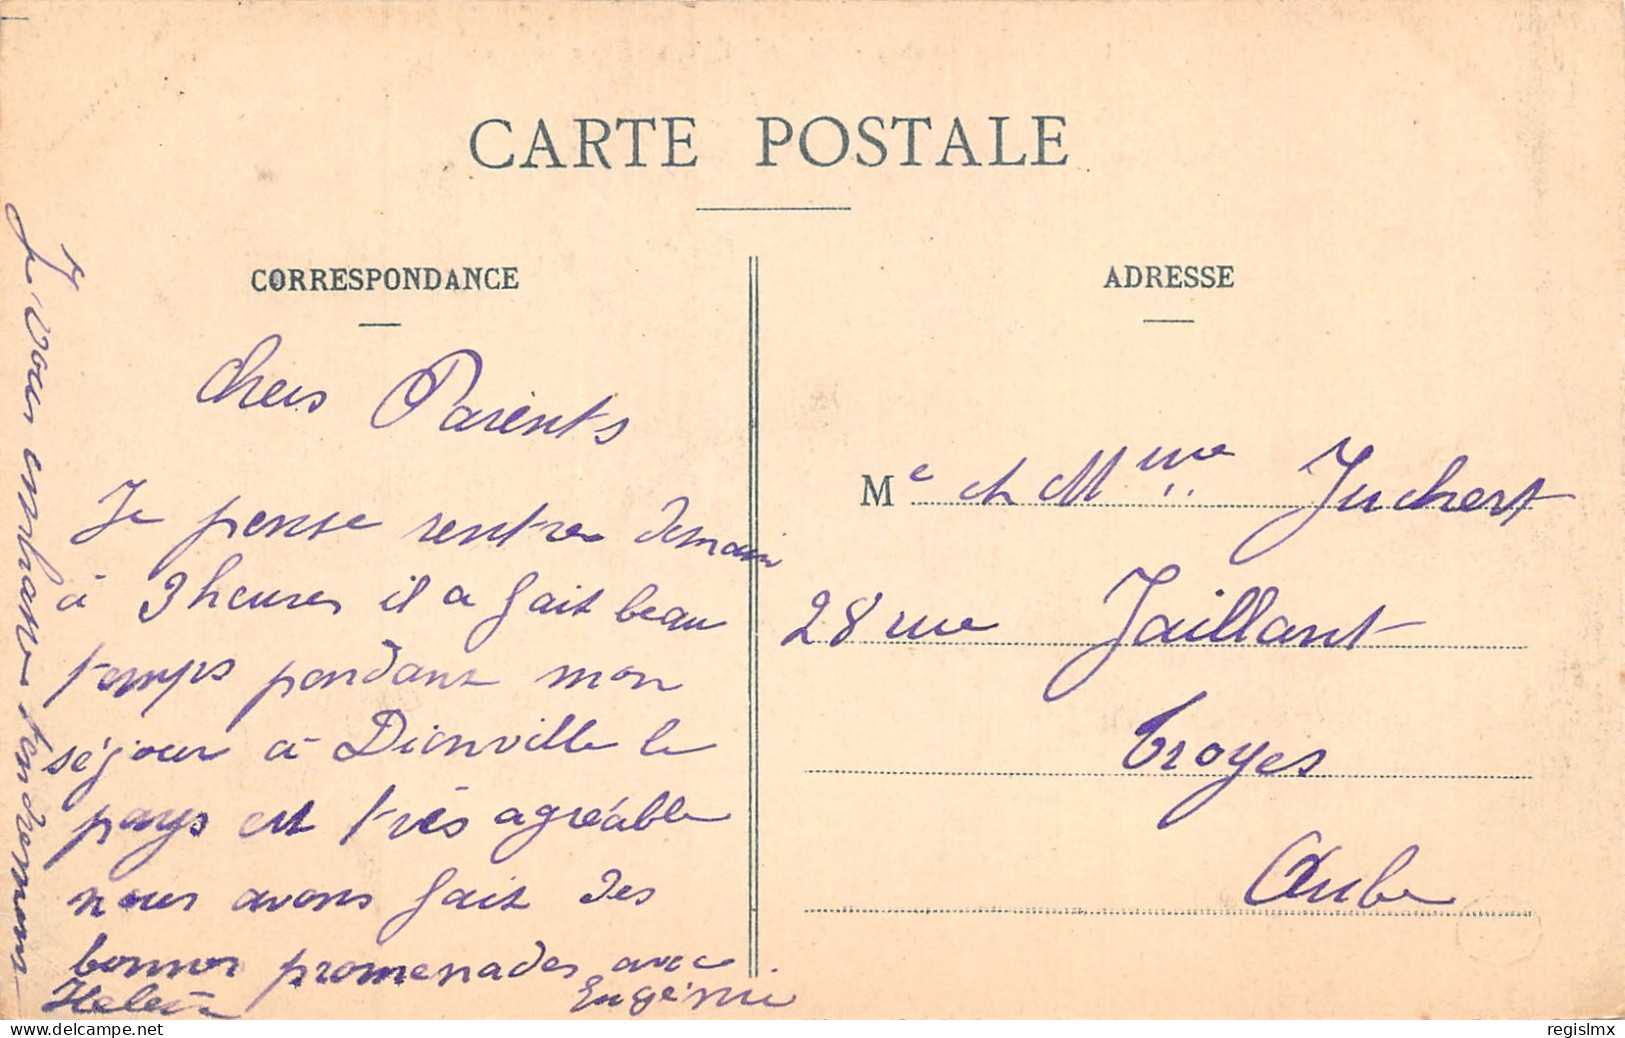 CARTE POSTALE
CORRESPONDANCE
ADRESSE
Chers Parents
Je pense rentrer demain
à 3 heures il a fait beau
temps pendant mon
séjour à Dienville le
pays est très agréable
nous avons fait des
bonnes promenades avec
Eugénie
Helene
Je vous embrasse tendrement
Me et Mme Juchert
28 rue Jaillant
Troyes
Aube
delcampe.net
regislmx